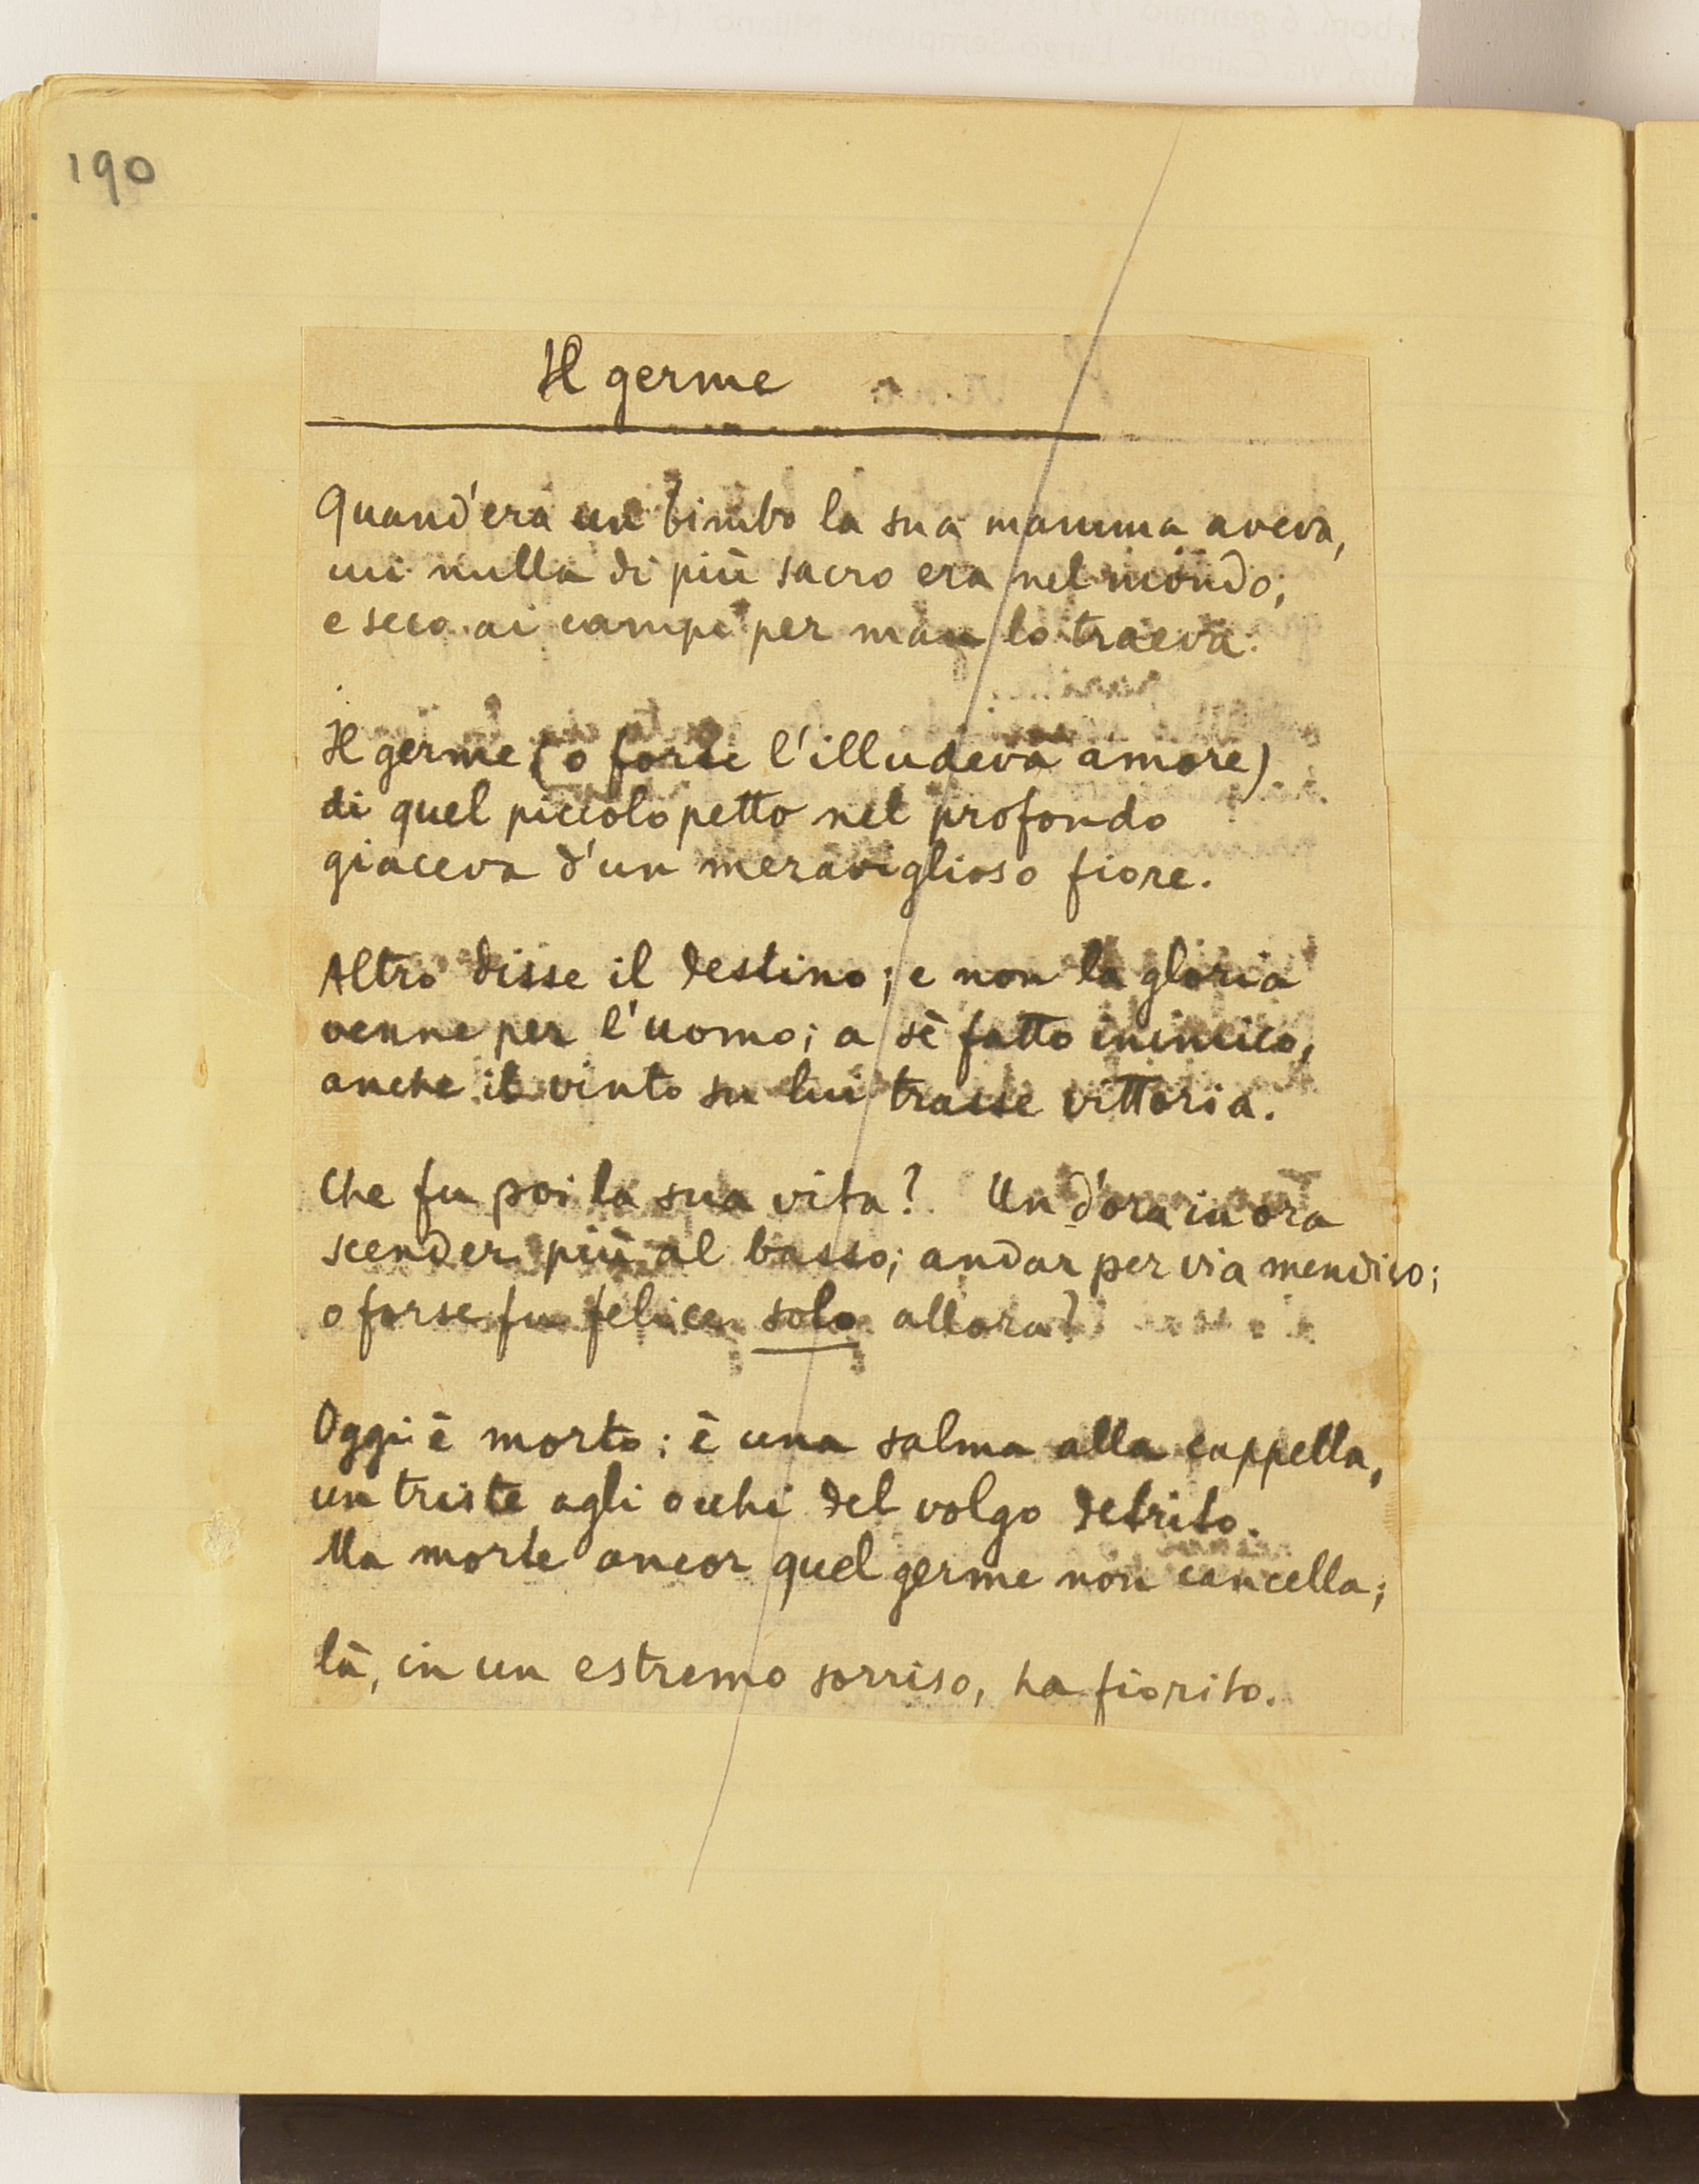 190
Il germe
Quand'era un bimbo la sua mamma aveva,
cui nulla di più sacro era nel mondo;
e seco ai campi per man lo traeva.
Il germe (o forse l'illudeva amore)
di quel piccolo petto nel profondo
giaceva d'un meraviglioso fiore.
Altro disse il destino; e non la gloria
venne per l'uomo; a sè fatto inimico,
anche il vinto su lui trasse vittoria.
Che fu poi la sua vita? Un d'ora in ora
scender più al basso; andar per via mendico;
o forse fu felice solo allora?
Oggi è morto: è una salma alla cappella,
un triste agli occhi del volgo detrito.
Ma morte ancor quel germe non cancella;
là, in un estremo sorriso, ha fiorito.